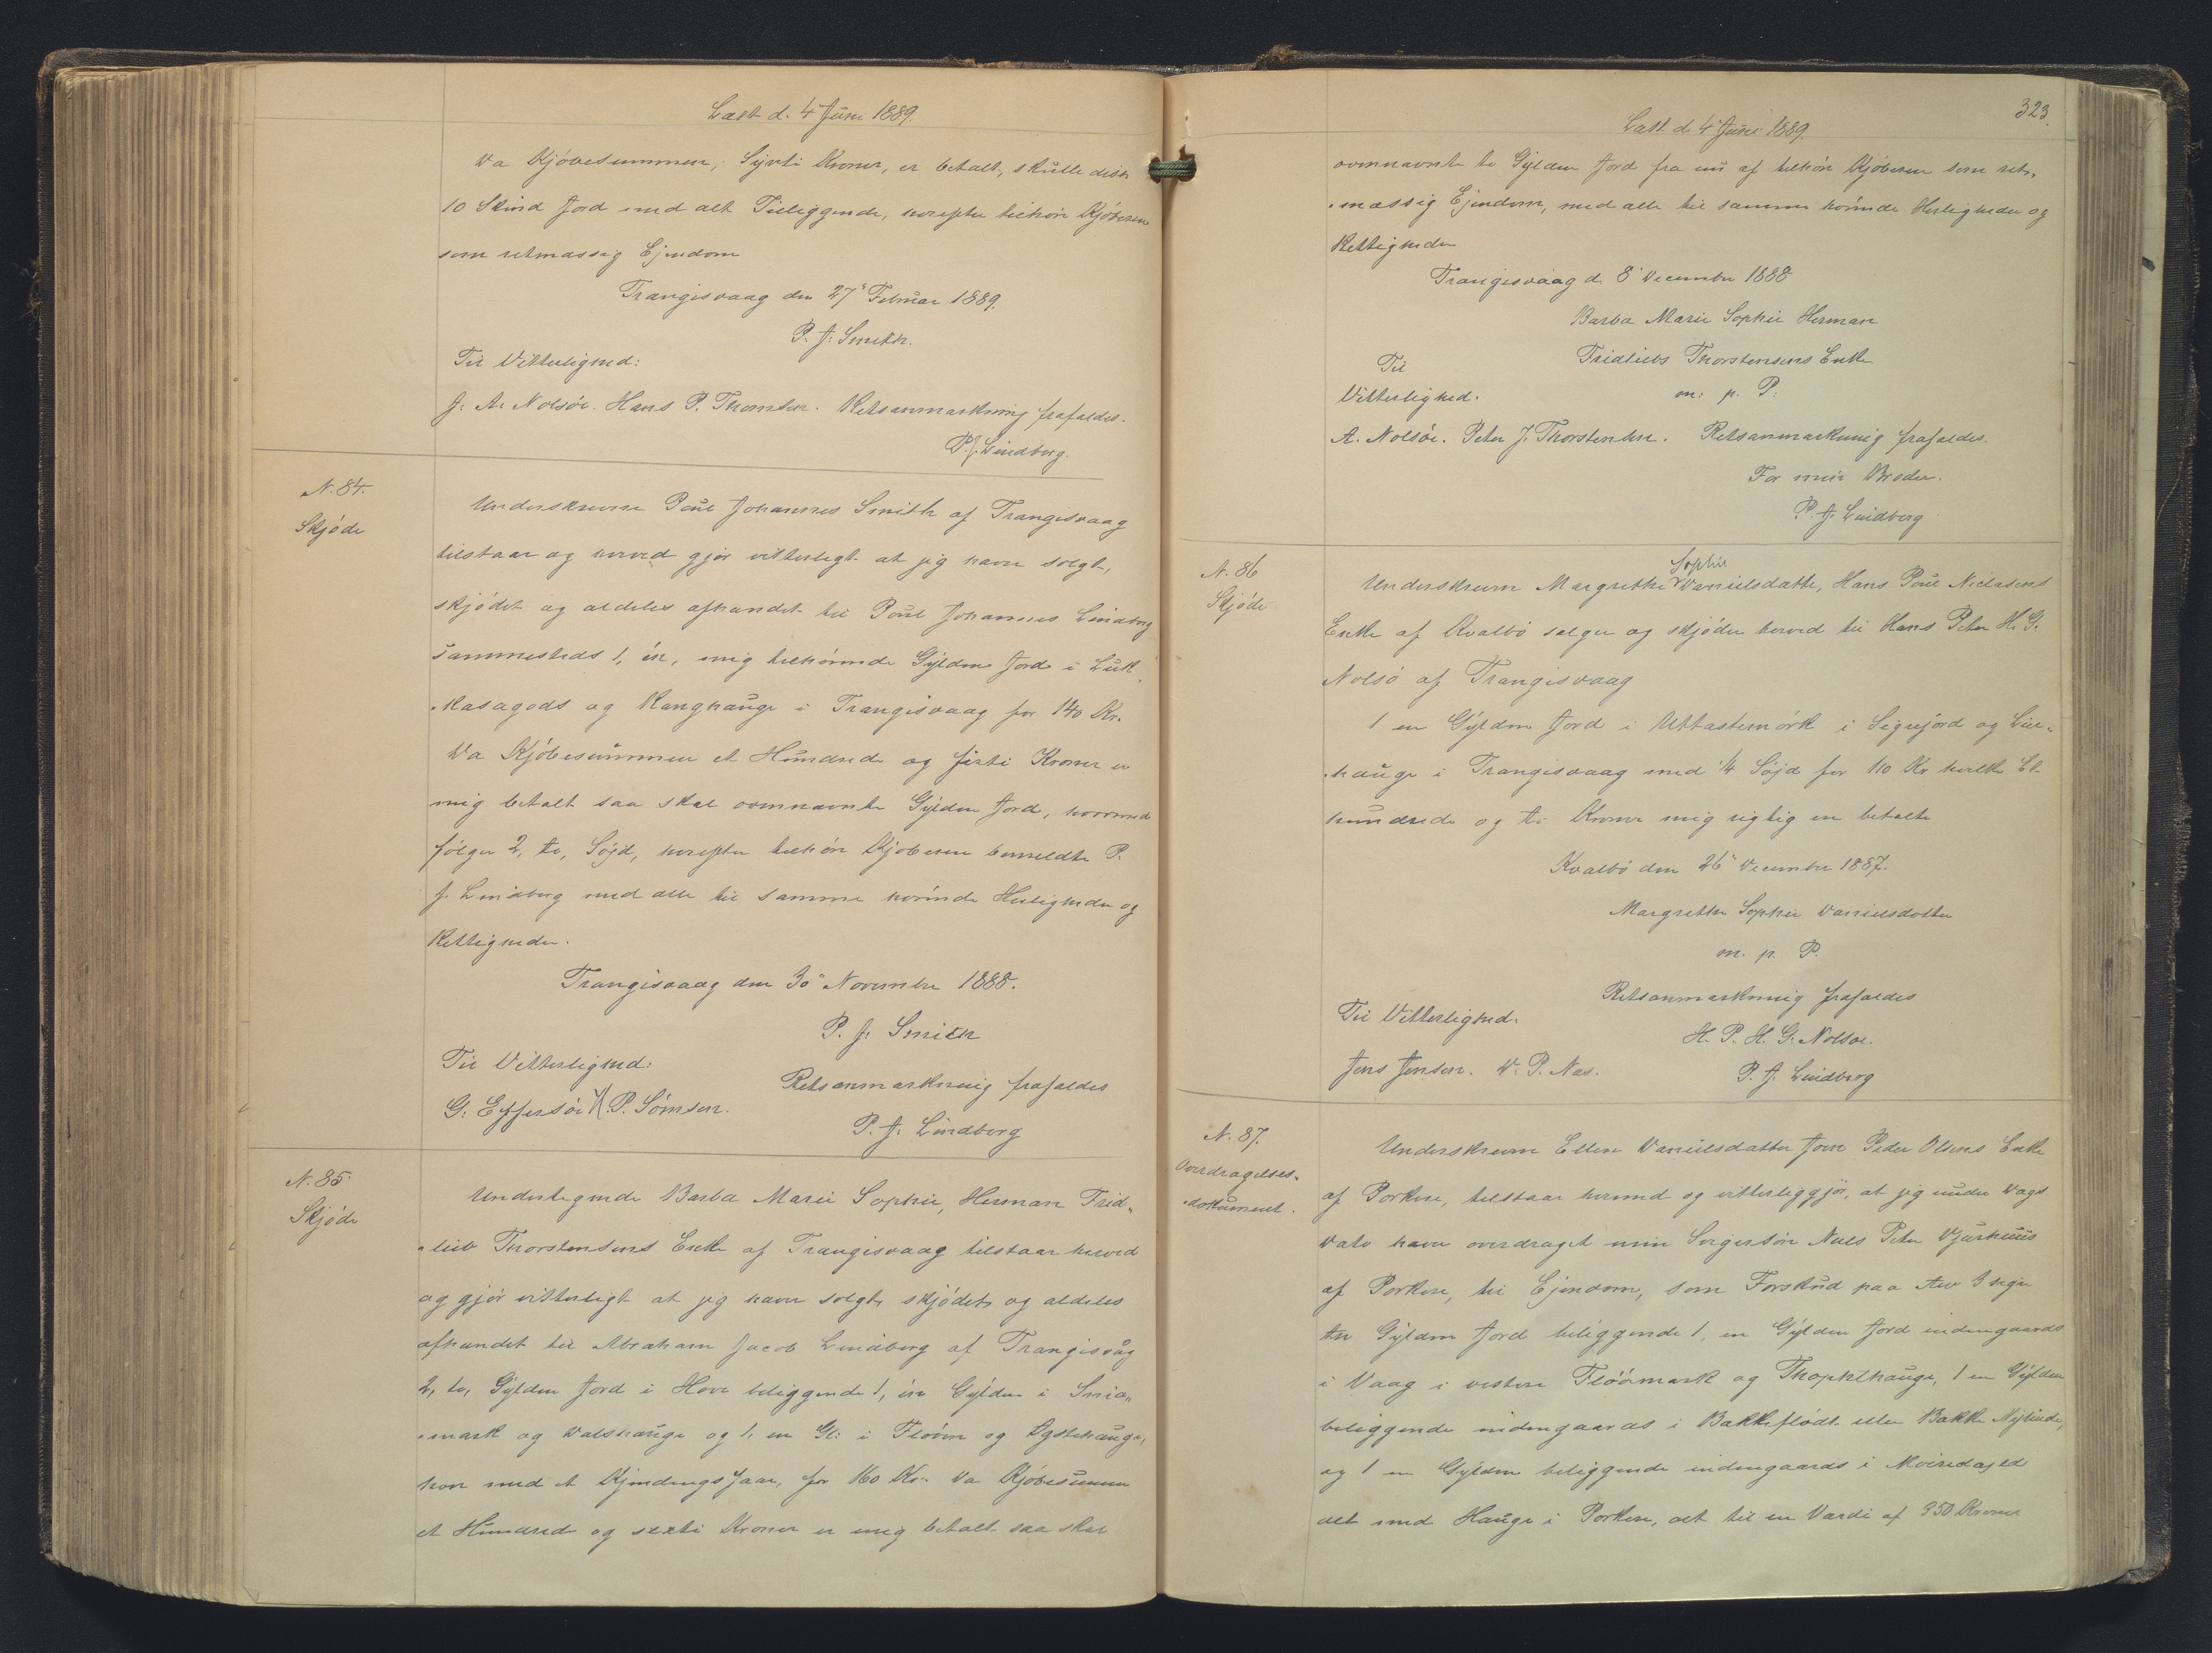 Læst d. 4 Juni 1889.
Da Kjøbesummen, Syvti Kroner, er betalt, skulle disse
10 Skind Jord med alt Tilliggende, herefter tilhøre Kjøberen
som retmæssig Ejendom
Trangisvaag den 27' Februar 1889.
P. J. Smith.
Til Vitterlighed:
J. A. Nolsøe. Hans P. Thomsen. Retsanmærkning frafaldes.
P. J. Lindberg.
N. 84.
Skjøde
Underskrevne Poul Johannes Smith af Trangisvaag
tilstaar og herved gjør vitterligt at jeg haver solgt,
skjødet og aldeles afhændet til Poul Johannes Lindberg
sammesteds 1, én, mig tilhørende Gylden Jord i Lük„
„kasagods og Ranghauge i Trangisvaag for 140 Kr.
Da Kjøbesummen et Hundrede og firti Kroner er
mig betalt saa skal ovennævnte Gylden Jord, hvormed
følger 2, to, Søjd, herefter tilhøre Kjøberen bemeldte P.
J. Lindberg med alle til samme hørende Herligheder og
Rettigheder.
Trangisvaag den 30" November 1888.
P. J. Smith
Til Vitterlighed:
Retsanmærkning frafaldes
G. Effersöe P. Sömsen.
P. J. Lindberg
N. 85
Skjøde
Undertegnede Barba Marie Sophie, Herman Frid„
„lieb Thorstensens Enke af Trangisvaag tilstaar herved
og gjør vitterligt at jeg haver solgt, skjødet, og aldeles
afhændet til Abraham Jacob Lindberg af Trangisvåg
2, to, Gylden Jord i Hove beliggende 1, én Gylden i Smia„
„mark og Dalshauge og 1, en Gl: i Flöórm og Agstehauge,
hvor med et Kjendings Faar, for 160 Kr. Da Kjøbesummen
et Hundrede og sexti Kroner er mig betalt saa skal
323
Læst d. 4' Juni 1889.
ovennævnte to Gylden Jord fra nu af tilhøre Kjøberen som ret„
„mæssig Ejendom, med alle til samme hørende Herligheder og
Rettigheder
Trangisvaag d. 8' December 1888
Barba Marie Sophie Herman
Fridliebs Thorstensens Enke
Til
Vitterlighed.
m: p. P:
A. Nolsöe. Peter J. Thorstensen. Retsanmærkning frafaldes.
For min Broder.
P. J. Lindberg
N. 86
Skjøde
Underskreven Margrethe Sophie Danielsdatter, Hans Poul Niclasens
Enke af Kvalbö sælger og skjøder herved til Hans Peter H. G.
Nolsö af Trangisvaag
1 en Gylden Jord i Uttastemörk i Segnejord og Lier„
„hauge i Trangisvaag med ¼ Søjd for 110 Kr hvilke Et
hundrede og ti Kroner mig rigtig er betalte
Kvalbö den 26' December 1887.
Margrethe Sophie Danielsdatter
m. p. P.
Retsanmærkning frafaldes
Til Vitterlighed.
H. P. H. G. Nolsøe.
Jens Jensen. D. P. Næs.
P. J. Lindberg
N. 87.
Overdragelses„
„dokument.
Underskreven Ellen Danielsdatter Joen Peder Olsens Enke
af Porkere, tilstaar hermed og vitterliggjør, at jeg under Dags
Dato haver overdraget min Svigersön Niels Peter Djurhuus
af Porkere, til Ejendom, som Forskud paa Arv 3 siger
tre Gylden Jord beliggende 1, en Gylden Jord indengaards
i Vaag i vestere Flöómark og Thophthauge, 1 en Gylden
beliggende indengaards i Bakkeflødt eller Bakke Nylinde,
og 1 en Gylden beliggende indengaards i Moinedajed
alt med Hauge i Porkere, alt til en Værdi af 350 Kroner